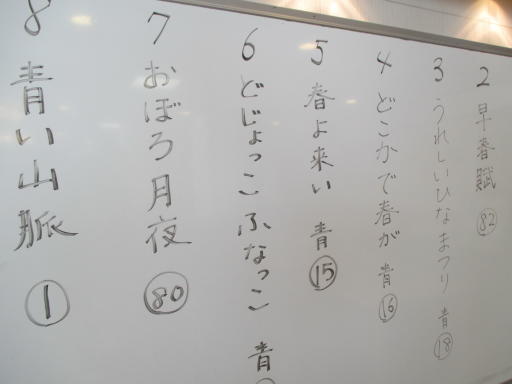 2 早春賦 82
3 うれしいひなまつり 青 18
4 どこかで春が 青 16
5 春よ来い 青 15
6 どじょっこふなっこ 青
7 おぼろ月夜 80
8 青い山脈 1